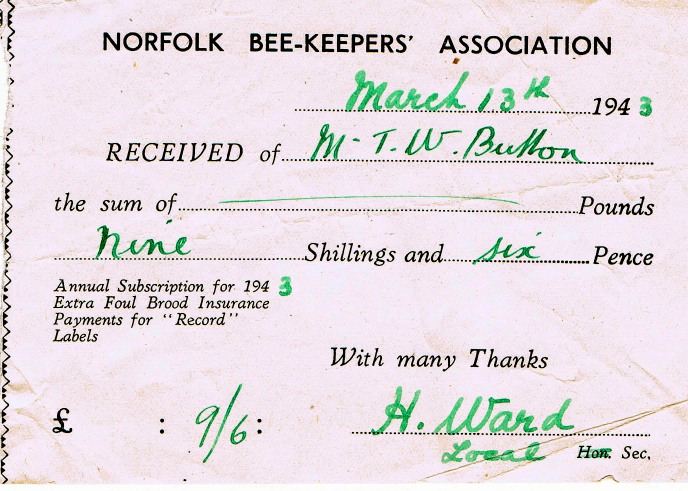 NORFOLK BEE-KEEPERS' ASSOCIATION
March 13th 1943
RECEIVED of M- T. W. Button
the sum of Pounds
nine Shillings and six Pence
Annual Subscription for 1943
Extra Foul Brood Insurance
Payments for "Record"
Labels
With many Thanks
£ : 9/6 :
H. Ward
Local Hon. Sec.